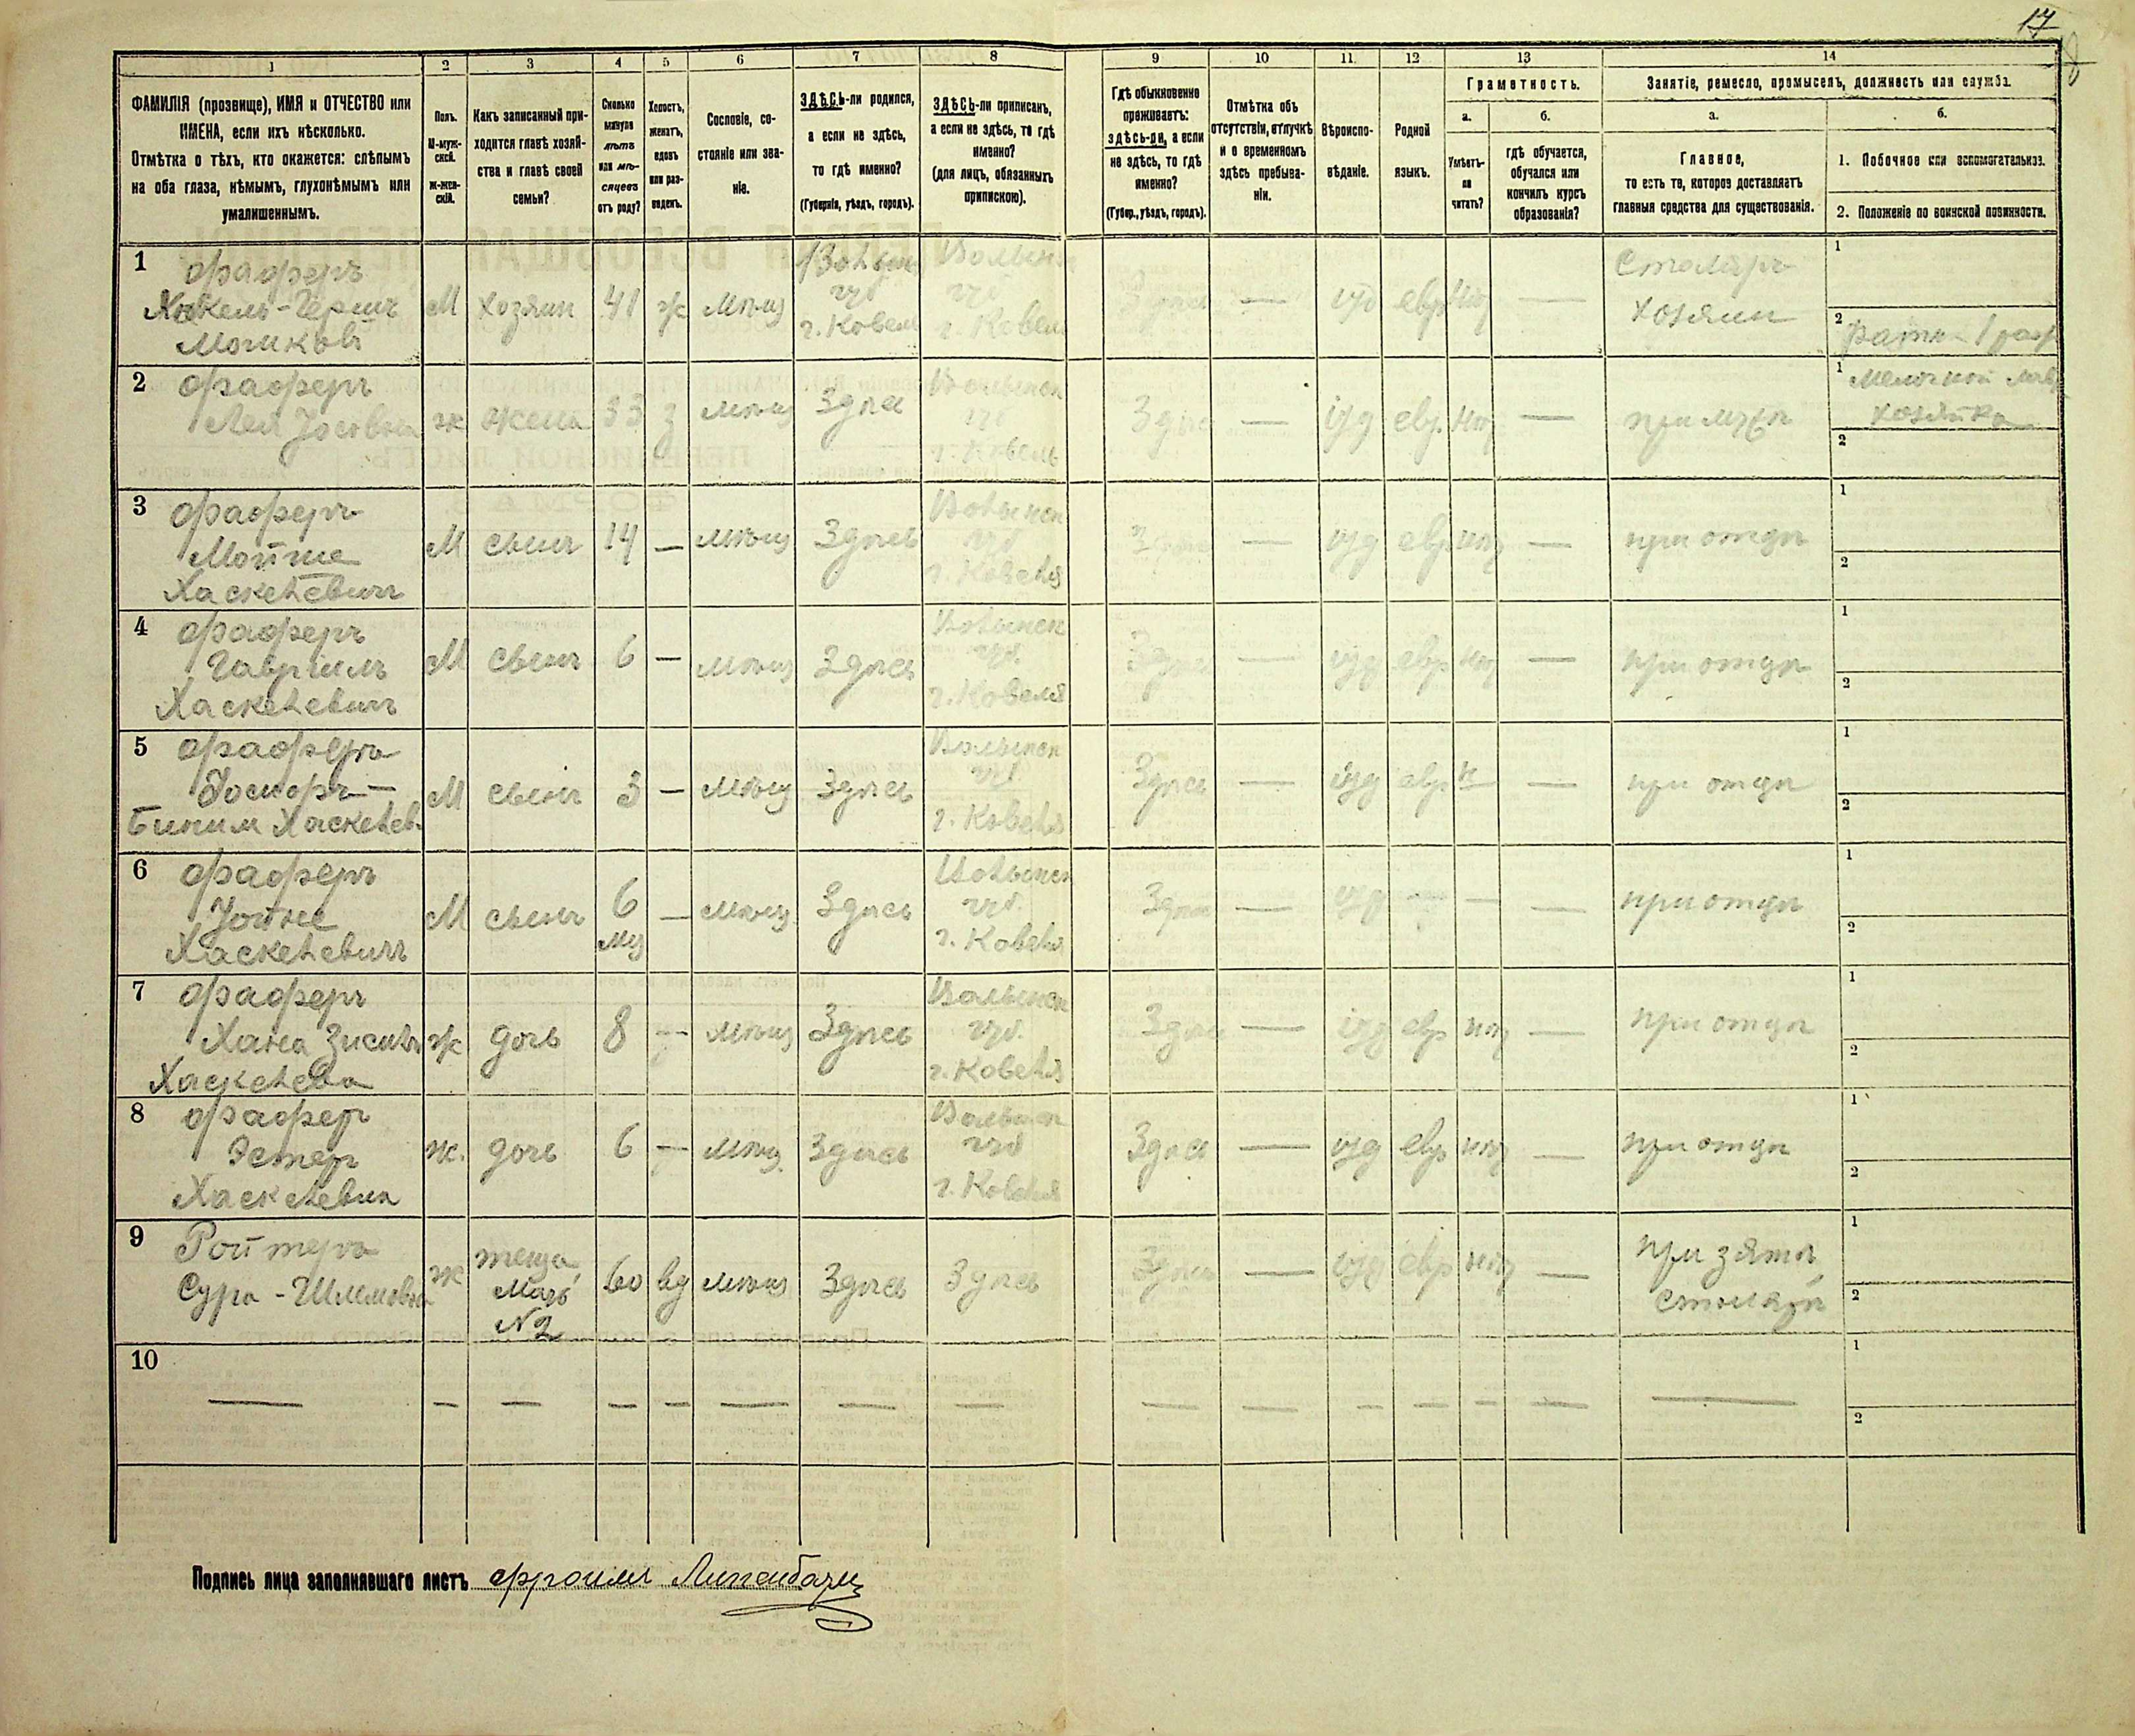 17
1 2 3 4 5 6 7 8 9 10 11 12 13 14
ФАМИЛІЯ (прозвище), ИМЯ и ОТЧЕСТВО или
ИМЕНА, если ихъ нѣсколько.
Отмѣтка о тѣхъ, кто окажется: слѣпымъ
на оба глаза, нѣмымъ, глухонѣмымъ или
умалишеннымъ.
Полъ.
М-муж-
ской.
ж-жен-
скій.
Какъ записанный при-
ходится главѣ хозяй-
ства и главѣ своей
семьи?
Сколько
минуло
лѣтъ
или мѣ-
сяцевъ
отъ роду?
Холостъ,
женатъ,
вдовъ
или раз-
веденъ.
Сословіе, со-
стояніе или зва-
ніе.
ЗДѢСЬ-ли родился,
а если не здѣсь,
то гдѣ именно?
(Губернія, уѣздъ, городъ).
ЗДѢСЬ-ли приписанъ,
а если не здѣсь, то гдѣ
именно?
(для лицъ, обязанныхъ
припискою).
Гдѣ обыкновенно
проживаетъ:
здѣсь-ли, а если
не здѣсь, то гдѣ
именно?
(Губер., уѣздъ, городъ).
Отмѣтка объ
отсутствіи, отлучкѣ
и о временномъ
здѣсь пребыва-
ніи.
Вѣроиспо-
вѣданіе.
Родной
языкъ.
Грамотность.
а.
Умѣетъ-
ли
читать?
б.
гдѣ обучается,
обучался или
кончилъ курсъ
образованія?
Занятіе, ремесло, промыселъ, должность или служба.
а.
Главное,
то есть то, которое доставляетъ
главныя средства для существованія.
б.
1. Побочное или вспомогательное.
2. Положеніе по воинской повинности.
1 Фаферъ
Мошковъ
М хозяин 41 ж мѣщ
г. Ковель
г. Ковель
— іуд евр —
Столяръ
хозяин
1
2
2 Фаферъ
Лея
ж жена 33 з мѣщ Здѣсь
г. Ковель
Здѣсь — іуд евр. —
1 Мелочной лав
хозяйка
2
3 Фаферъ
Мойше
Хаскелевичъ
М сынъ 14 — мѣщ Здѣсь
Волынск
губ
г. Ковеля
— іуд евр — при отцѣ
1
2
4 Фаферъ
Гавріилъ
Хаскелевичъ
М сынъ 6 — мѣщ Здѣсь
Волынск
губ.
г. Ковеля
Здѣсь — іуд евр — при отцѣ
1
2
5 Фаферъ
Іосифъ —
Биним Хаскелев.
М сынъ 3 — мѣщ Здѣсь
Волынск
губ
г. Ковеля
Здѣсь — іуд евр н — при отцѣ
1
2
6 Фаферъ
Хаскелевичъ
М сынъ 6
мѣс — мѣщ Здѣсь
Волынск
губ.
г. Ковеля
Здѣсь — іуд — — — при отцѣ
1
2
7 Фаферъ
Хана
Хаскелева
ж дочь 8 — мѣщ Здѣсь
Волынск
губ.
г. Ковеля
Здѣсь — іуд евр — при отцѣ
1
2
8 Фафер
Эстер
Хаскелевна
ж. дочь 6 — мѣщ. Здѣсь
Волынск
губ
г. Ковеля
Здѣсь — іуд евр — при отцѣ
1
2
9 Ройтеръ
Сура -
ж теща,
Мать
№ 2
60 вд мѣщ Здѣсь Здѣсь Здѣсь — іуд евр —
при зятѣ
столярѣ
1
2
10
— — — — — — — — — — — — — — —
1
2
Подпись лица заполнявшаго листъ